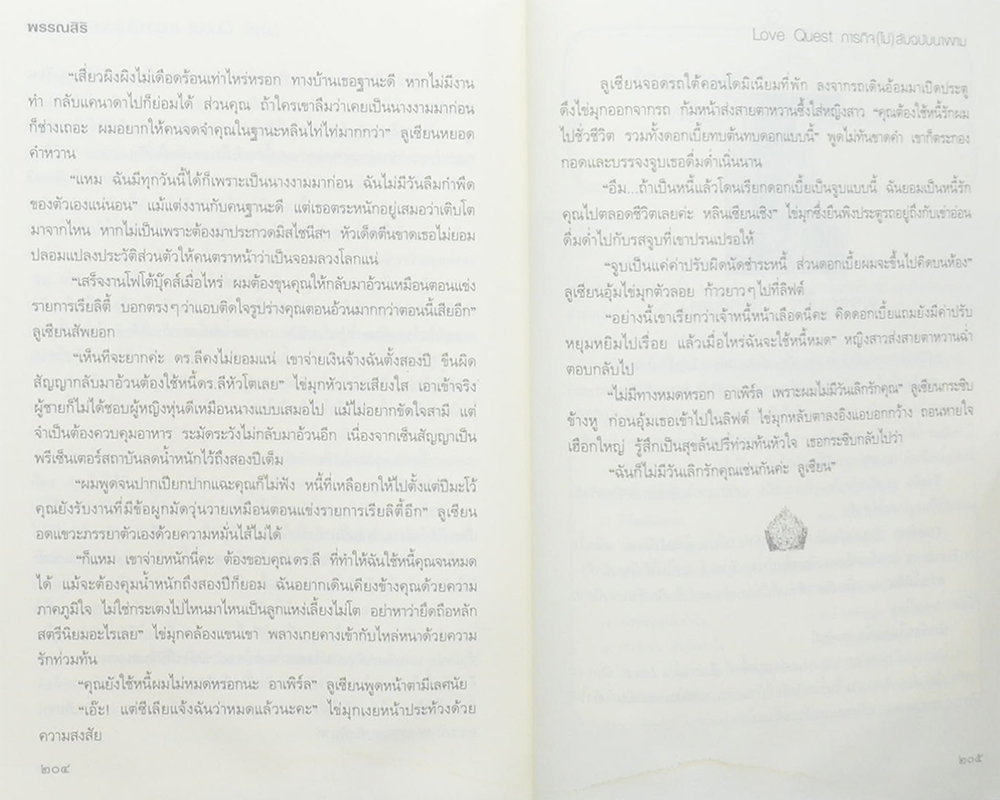 พรรณสิริ
“เสี่ยวผิงผิงไม่เดือดร้อนเท่าไหร่หรอก ทางบ้านเธอฐานะดี หากไม่มีงาน
ทำ กลับแคนาดาไปก็ย่อมได้ ส่วนคุณ ถ้าใครเขาลืมว่าเคยเป็นนางงามมาก่อน
ก็ช่างเถอะ ผมอยากให้คนจดจำคุณในฐานะหลินไท่ไท่มากกว่า” ลูเซียนหยอด
คำหวาน
“แหม ฉันมีทุกวันนี้ได้ก็เพราะเป็นนางงามมาก่อน ฉันไม่มีวันลืมกำพืด
ของตัวเองแน่นอน” แม้แต่งงานกับคนฐานะดี แต่เธอตระหนักอยู่เสมอว่าเติบโต
มาจากไหน หากไม่เป็นเพราะต้องมาประกวดมิสไชนีสฯ หัวเด็ดตีนขาดเธอไม่ยอม
ปลอมแปลงประวัติส่วนตัวให้คนตราหน้าว่าเป็นจอมลวงโลกแน่
“เสร็จงานโฟโต้บุ๊คส์เมื่อไหร่ ผมต้องขุนคุณให้กลับมาอ้วนเหมือนตอนแข่ง
รายการเรียลิตี้ บอกตรงๆว่าแอบติดใจรูปร่างคุณตอนอ้วนมากกว่าตอนนี้เสียอีก”
ลูเซียนสัพยอก
“เห็นทีจะยากค่ะ ดร.ลีคงไม่ยอมแน่ เขาจ่ายเงินจ้างฉันตั้งสองปี ขืนผิด
สัญญากลับมาอ้วนต้องใช้หนี้ดร.ลีหัวโตเลย” ไข่มุกหัวเราะเสียงใส เอาเข้าจริง
ผู้ชายก็ไม่ได้ชอบผู้หญิงหุ่นดีเหมือนนางแบบเสมอไป แม้ไม่อยากขัดใจสามี แต่
จำเป็นต้องควบคุมอาหาร ระมัดระวังไม่กลับมาอ้วนอีก เนื่องจากเซ็นสัญญาเป็น
พรีเซ็นเตอร์สถาบันลดน้ำหนักไว้ถึงสองปีเต็ม
“ผมพูดจนปากเปียกปากแฉะคุณก็ไม่ฟัง หนี้ที่เหลือยกให้ไปตั้งแต่ปีมะโว้
คุณยังรับงานที่มีข้อผูกมัดวุ่นวายเหมือนตอนแข่งรายการเรียลิตี้อีก” ลูเซียน
อดแขวะภรรยาตัวเองด้วยความหมั่นไส้ไม่ได้
“ก็แหม เขาจ่ายหนักนี่คะ ต้องขอบคุณดร.ลี ที่ทำให้ฉันใช้หนี้คุณจนหมด
ได้ แม้จะต้องคุมน้ำหนักถึงสองปีก็ยอม ฉันอยากเดินเคียงข้างคุณด้วยความ
ภาคภูมิใจ ไม่ใช่กระเตงไปไหนมาไหนเป็นลูกแหง่เลี้ยงไม่โต อย่าหาว่ายึดถือหลัก
สตรีนิยมอะไรเลย” ไข่มุกคล้องแขนเขา พลางเกยคางเข้ากับไหล่หนาด้วยความ
รักท่วมท้น
“คุณยังใช้หนี้ผมไม่หมดหรอกนะ อาเพิร์ล” ลูเซียนพูดหน้าตามีเลศนัย
“เอ๊ะ! แต่ซีเลียแจ้งฉันว่าหมดแล้วนะคะ” ไข่มุกเงยหน้าประท้วงด้วย
ความสงสัย
๒๐๔
Love Quest ภารกิจ(ไม่)ลับฉบับนางงาม
ลูเซียนจอดรถใต้คอนโดมิเนียมที่พัก ลงจากรถเดินอ้อมมาเปิดประตู
ดึงไข่มุกออกจากรถ ก้มหน้าส่งสายตาหวานซึ้งใส่หญิงสาว “คุณต้องใช้หนี้รักผม
ไปชั่วชีวิต รวมทั้งดอกเบี้ยทบต้นทบดอกแบบนี้” พูดไม่ทันขาดคำ เขาก็ตระกอง
กอดและบรรจงจูบเธอดื่มด่ำเนิ่นนาน
“อืม...ถ้าเป็นหนี้แล้วโดนเรียกดอกเบี้ยเป็นจูบแบบนี้ ฉันยอมเป็นหนี้รัก
คุณไปตลอดชีวิตเลยค่ะ หลินเซียนเซิง” ไข่มุกซึ่งยืนพิงประตูรถอยู่ถึงกับเข่าอ่อน
ดื่มด่ำไปกับรสจูบที่เขาปรนเปรอให้
“จูบเป็นแค่ค่าปรับผิดนัดชำระหนี้ ส่วนดอกเบี้ยผมจะขึ้นไปคิดบนห้อง”
ลูเซียนอุ้มไข่มุกตัวลอย ก้าวยาวๆไปที่ลิฟต์
“อย่างนี้เขาเรียกว่าเจ้าหนี้หน้าเลือดนี่คะ คิดดอกเบี้ยแถมยังมีค่าปรับ
หยุมหยิมไปเรื่อย แล้วเมื่อไหร่ฉันจะใช้หนี้หมด” หญิงสาวส่งสายตาหวานฉ่ำ
ตอบกลับไป
“ไม่มีทางหมดหรอก อาเพิร์ล เพราะผมไม่มีวันเลิกรักคุณ” ลูเซียนกระซิบ
ข้างหู ก่อนอุ้มเธอเข้าไปในลิฟต์ ไข่มุกหลับตาลงอิงแอบอกกว้าง ถอนหายใจ
เฮือกใหญ่ รู้สึกเป็นสุขล้นปรี่ท่วมท้นหัวใจ เธอกระซิบกลับไปว่า
“ฉันก็ไม่มีวันเลิกรักคุณเช่นกันค่ะ ลูเซียน”
๒๐๕